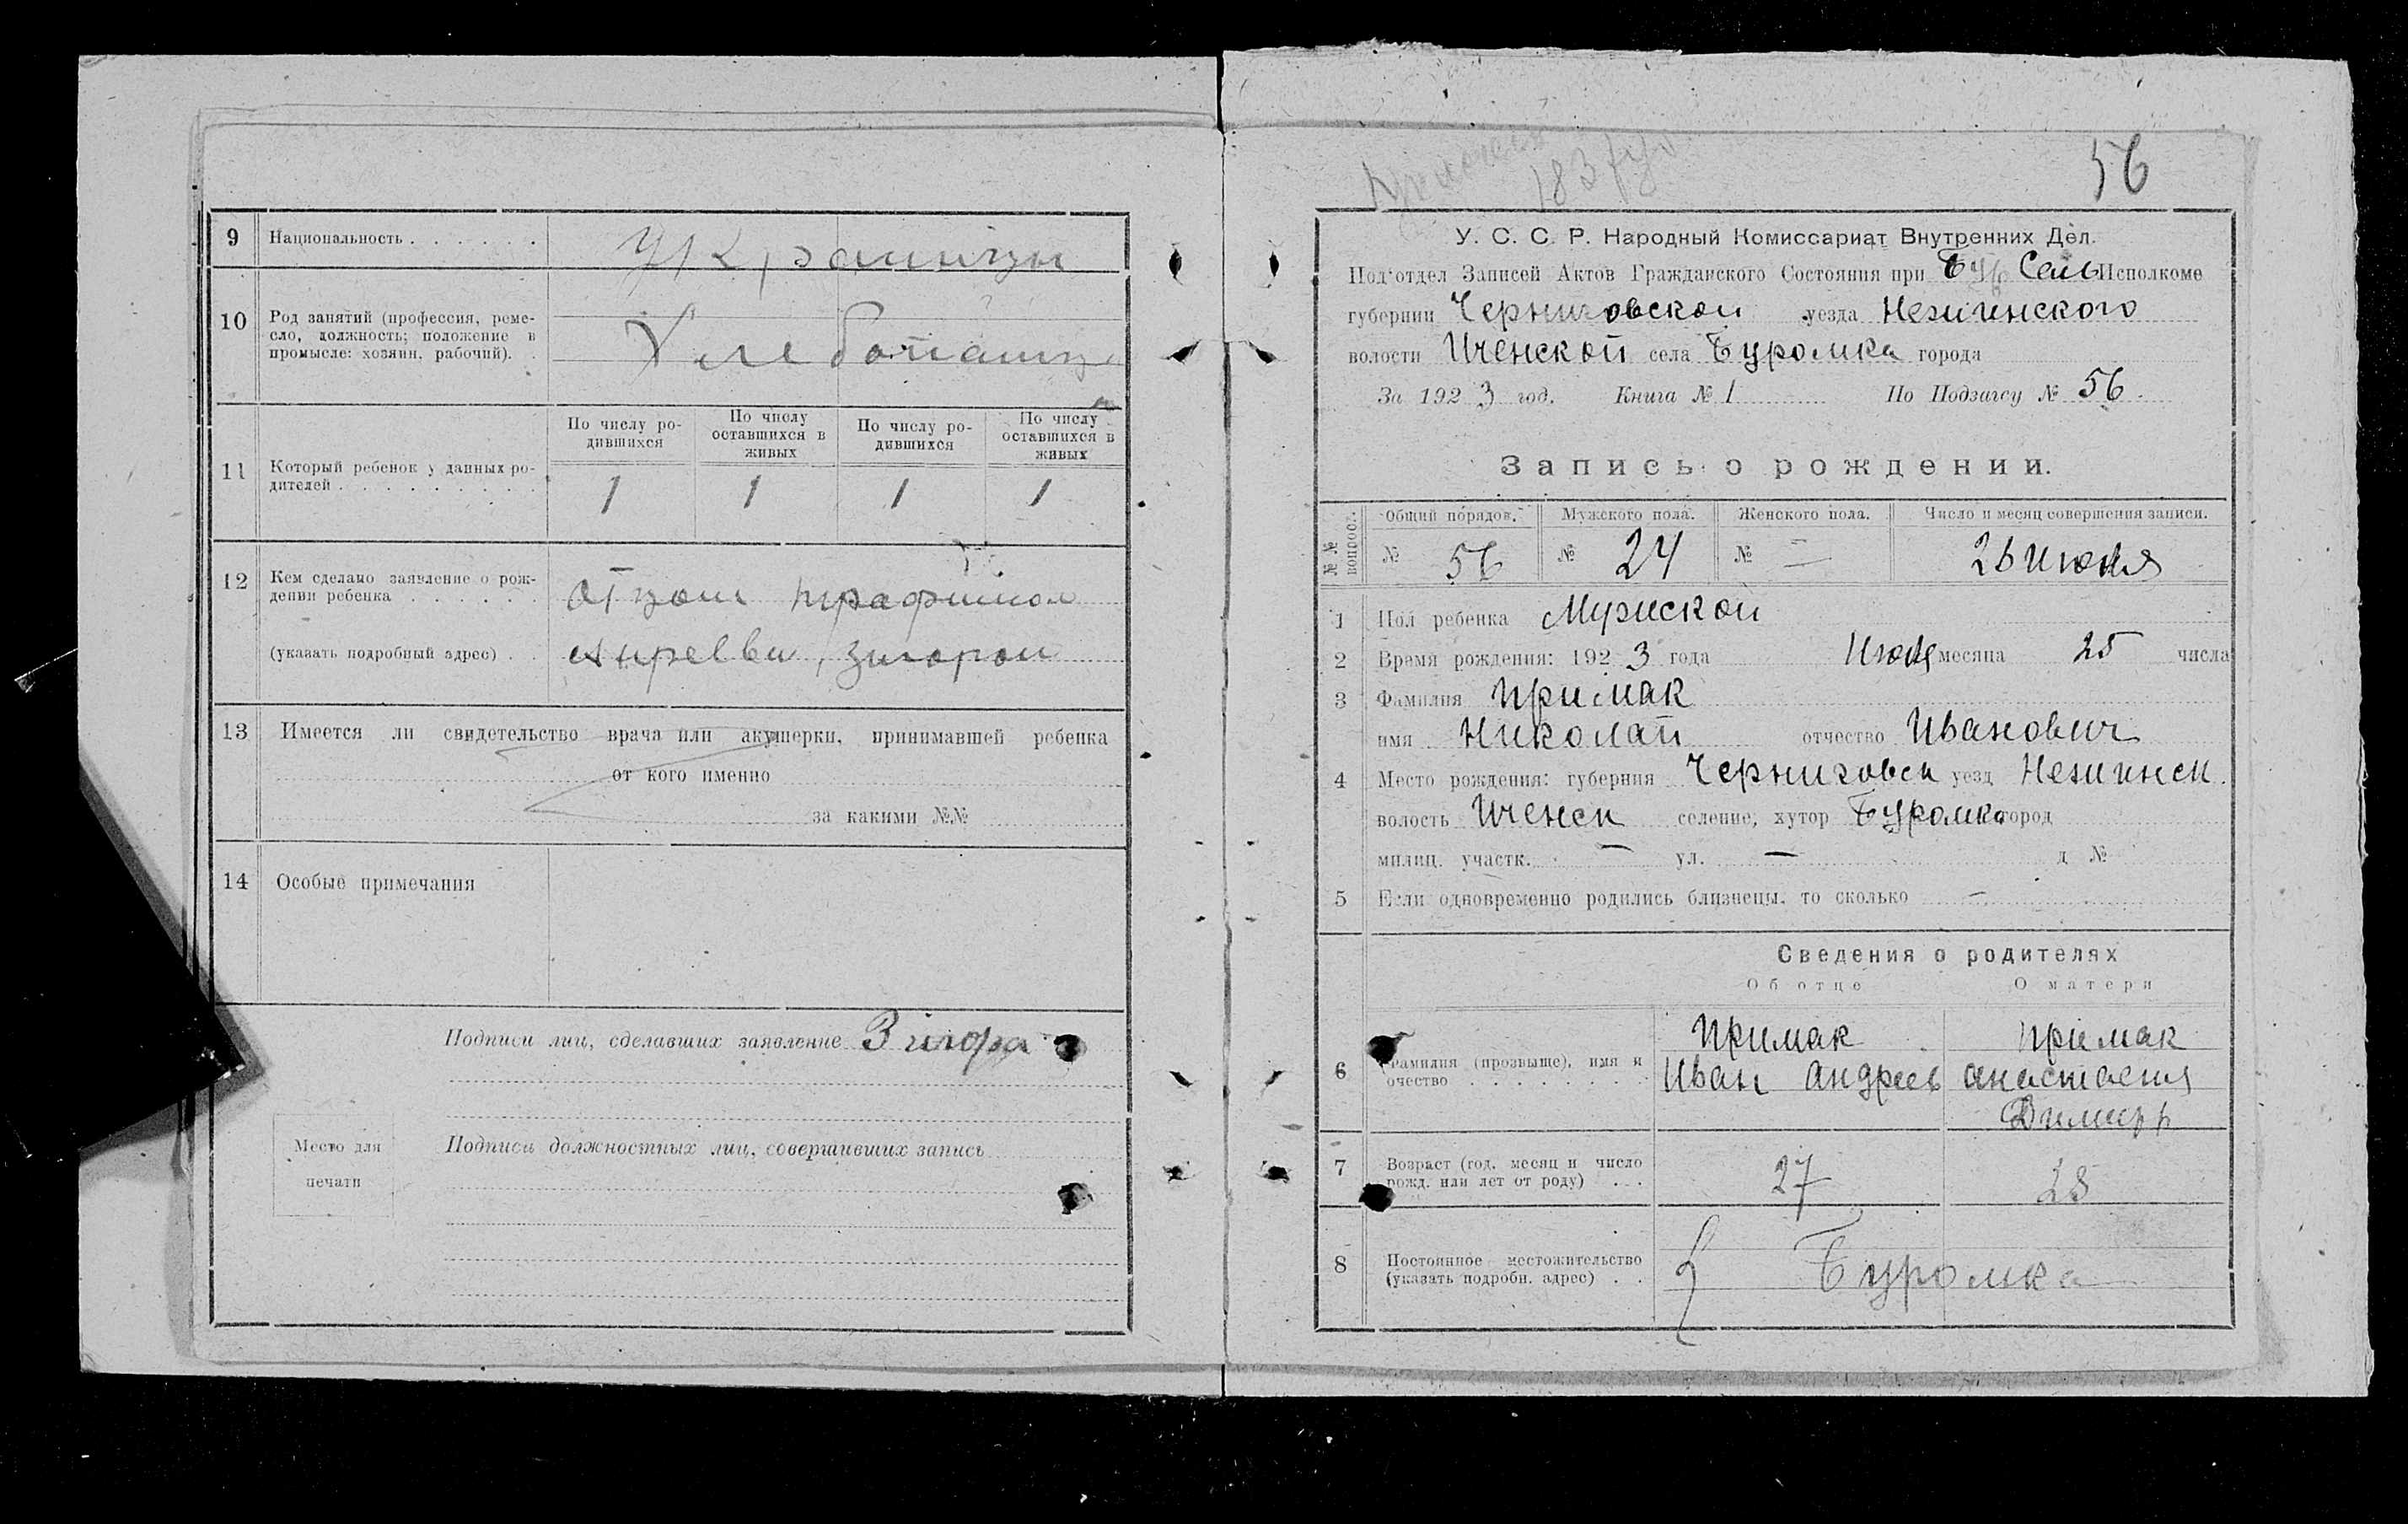 9 Национальность . . . . . . Украинцы
10 Род занятий (профессия, реме-
сло, должность; положение в
промысле: хозяин, рабочий). . Хлебопашцы
11 Который ребенок у данных ро-
дителей . . . . . . . . .
По числу ро-
дившихся
По числу
оставшихся в
живых
По числу ро-
дившихся
По числу
оставшихся в
живых
1 1 1 1
12 Кем сделано заявление о рож-
дении ребенка . . . . . . Отцом
(указать подробный адрес) . .
13 Имеется ли свидетельство врача или акушерки, принимавшей ребенка
от кого именно
за какими №№
14 Особые примечания
Подписи лиц, сделавших заявление
Место для
печати
Подписи должностных лиц, совершивших запись
183
56
У. С. С. Р. Народный Комиссариат Внутренних Дел.
Под'отдел Записей Актов Гражданского Состояния при Бур Сель Исполкоме
губернии Черниговской уезда Нежинского
волости Иченской села Буромка города
За 1923 год. Книга № 1 По Подзагсу № 56
Запись о рождении.
№№ вопросов.
Общий порядов. Мужского пола. Женского пола. Число и месяц совершения записи.
№ 56 № 24 № — 26 июня
1 Пол ребенка Мужской
2 Время рождения: 1923 года Июня месяца 25 числа
3 Фамилия Примак
имя Николай отчество Иванович
4 Место рождения: губерния Черниговск уезд Нежинск
волость Иченск селение, хутор Буромка город
милиц. участк. — ул. — д №
5 Если одновременно родились близнецы, то сколько —
Сведения о родителях
Об отце О матери
6 Фамилия (прозвище), имя и
очество . . . . . . . .
Примак Примак
Иван Андреев Анастасия
7 Возраст (год, месяц и число
рожд. или лет от роду) . . . 27 28
8 Постоянное местожительство
(указать подробн. адрес) . . Буромка